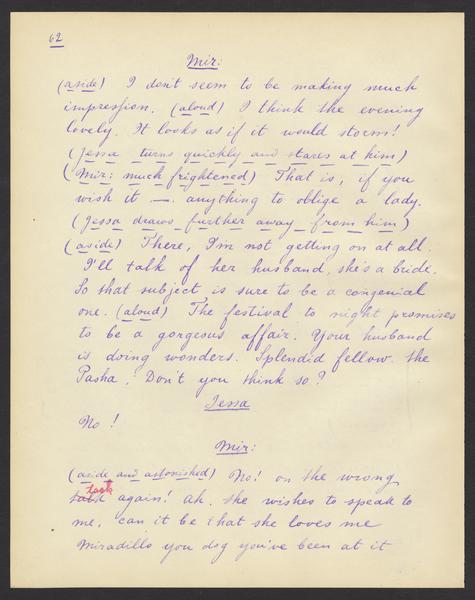 62
Mir:
(aside) I don't seem to be making much
impression. (aloud) I think the evening
lovely. It looks as if it would storm!
(Jessa turns quickly and stares at him)
(Mir: much frightened) That is, if you
wish it —. anything to oblige a lady.
(Jessa draws further away from him)
(aside) There, I'm not getting on at all.
I'll talk of her husband, she's a bride.
So that subject is sure to be a congenial
one. (aloud) The festival to night promises
to be a gorgeous affair. Your husband
is doing wonders. Splendid fellow the
Pasha. Don't you think so?
Jessa
No!
Mir:
(aside and astonished) No! on the wrong
tack
again! Ah, she wishes to speak to
me, can it be that she loves me
Miradillo you dog you've been at it